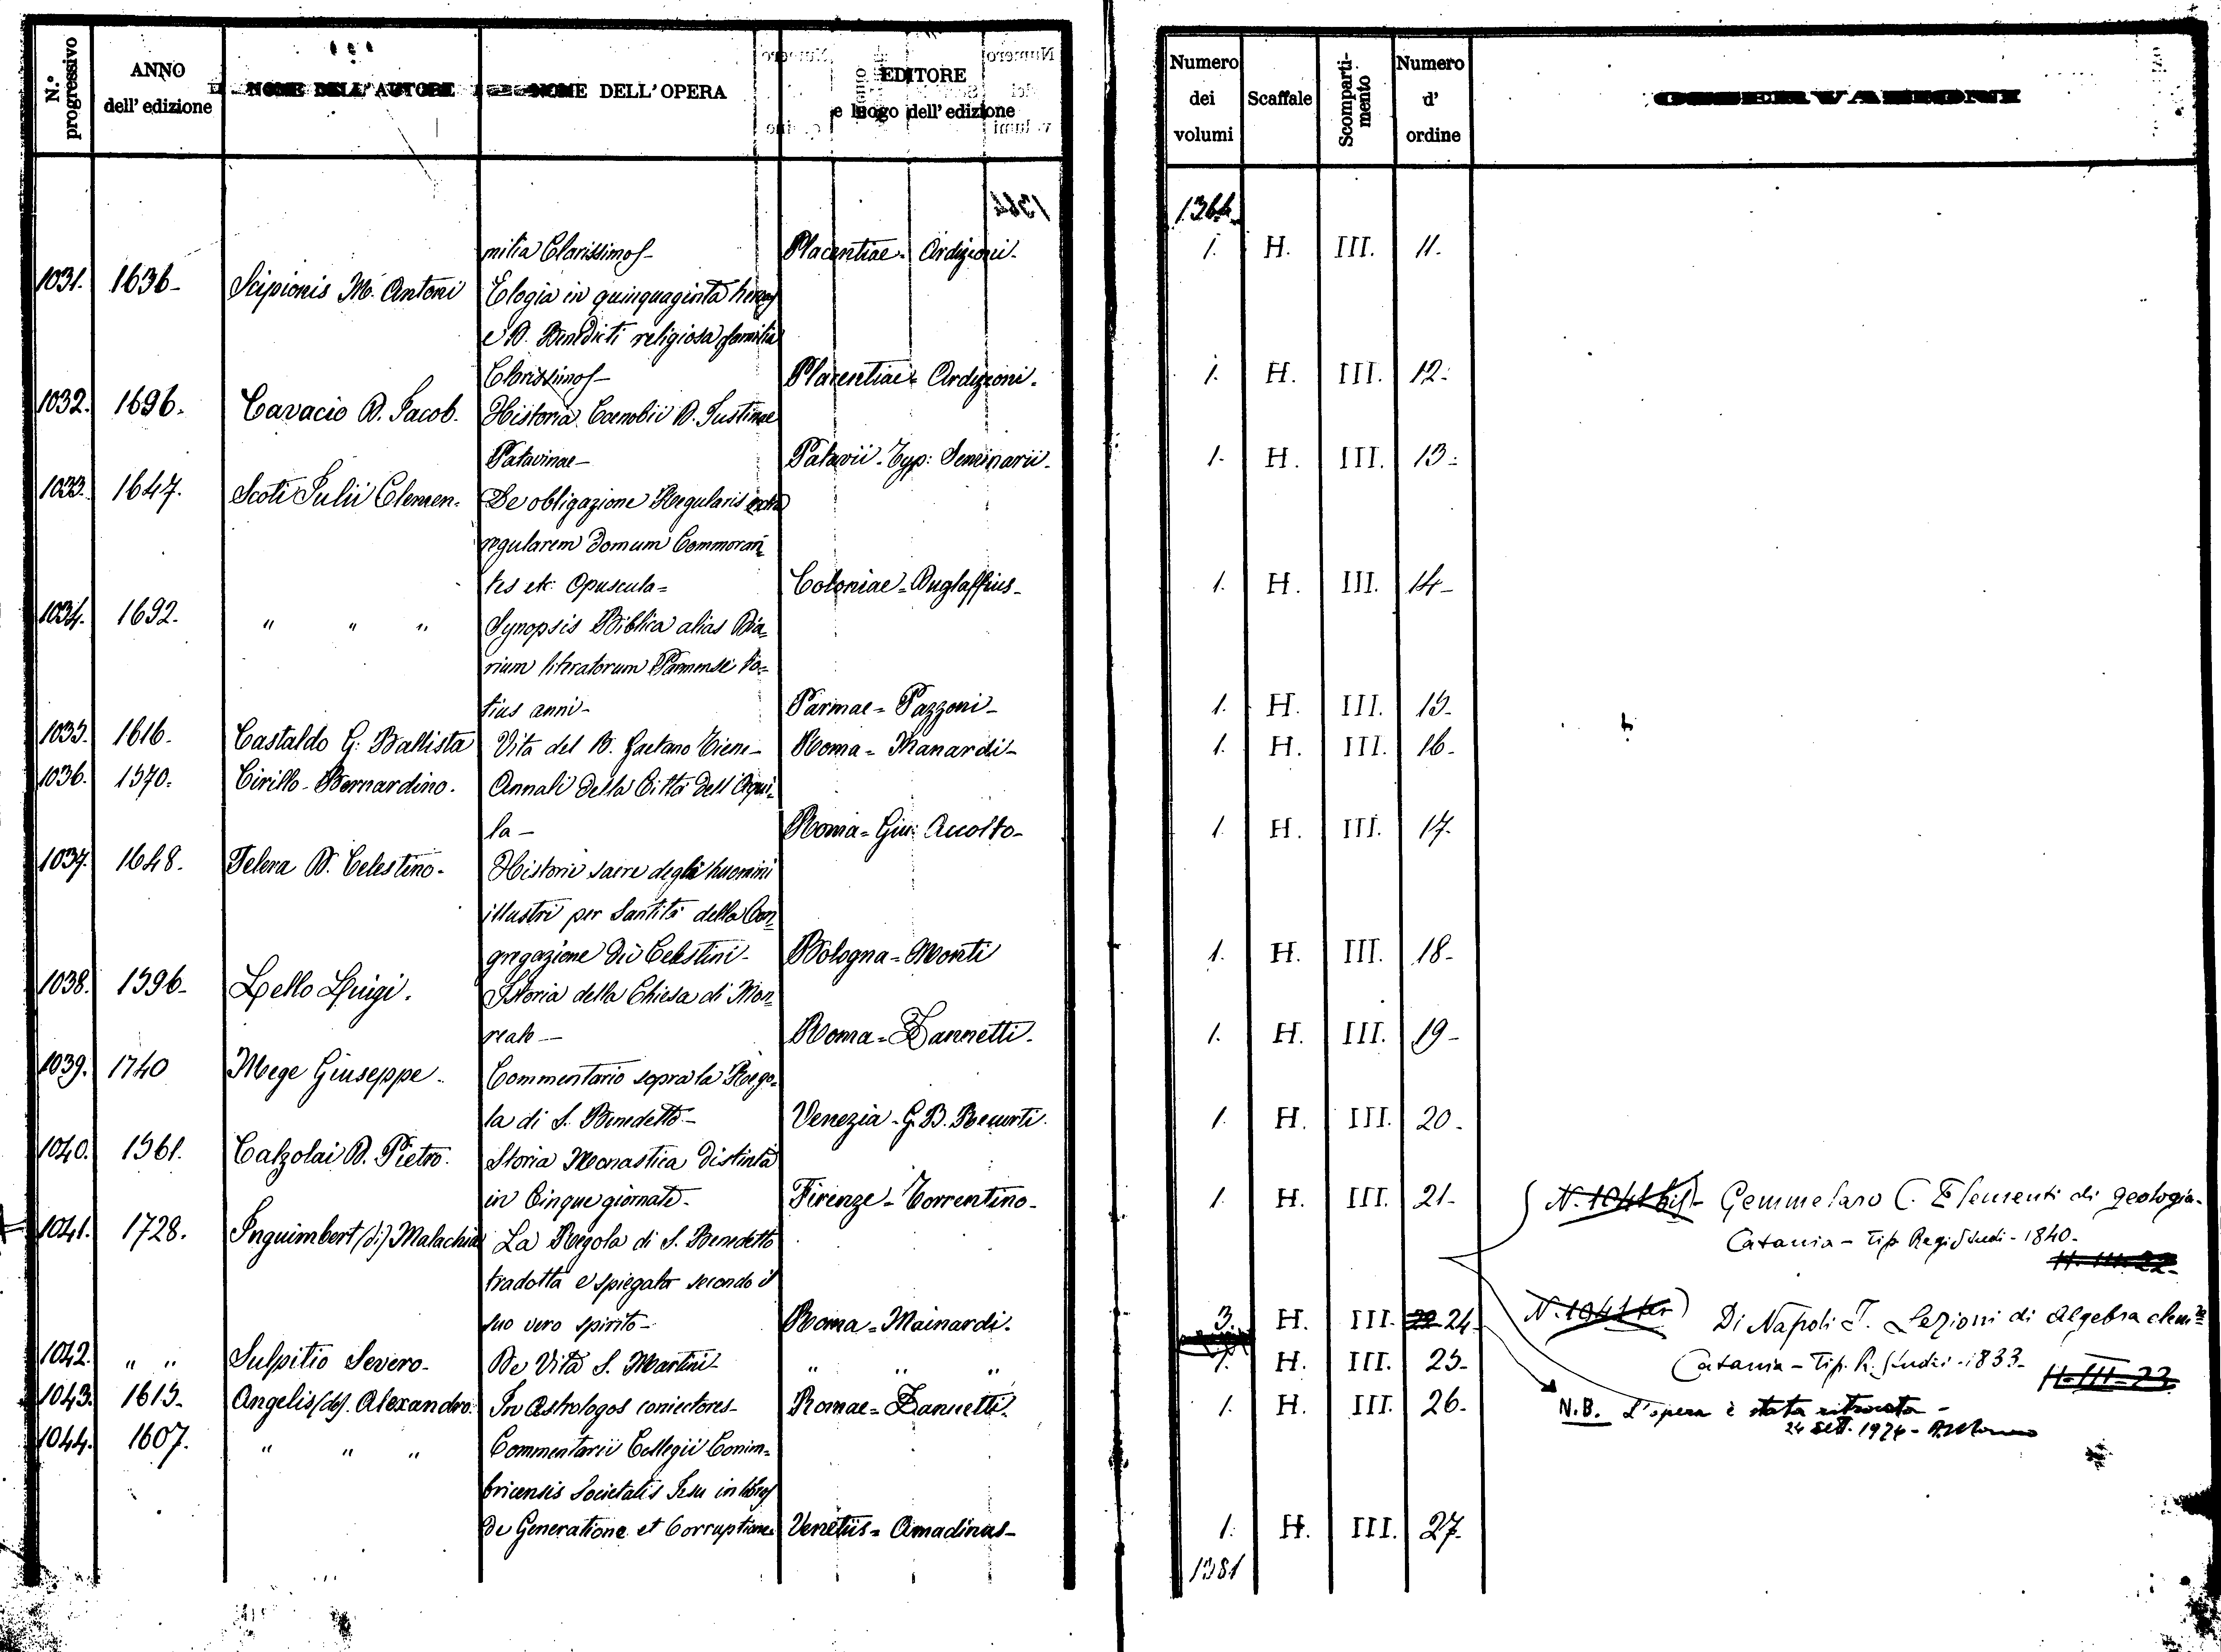 N.º progressivo ANNO dell' edizione NOME DELL'AUTORE NOME DELL'OPERA EDITORE e luogo dell'edizione Numero dei volumi Scaffale Scomparti-mento Numero d' ordine OSSERVAZIONI
1364
milia Clarissimos- Placentiae= Ardizoni- 1. H. III. 11.
1031. 1636- Scipionis M. Antoni Elogia in quinquaginta heroas
e D. Benedicti religiosa familia
Clarissimos- Placentiae= Ardizzoni. 1. H. III. 12.
1032. 1696. Cavacio D. Jacob. Historia Coenobii D. Justinae
Patavinae- Patavii. Typ: Seminarii. 1. H. III. 13.
1033. 1647. Scoti Julii Clemen. De obligazione Regularis extra
regularem domum Commoran=
tes etc: Opuscula= Coloniae= 1. H. III. 14-
1034. 1692. " " " Synopsis Biblica alias Dia=
rium literatorum Parmense to=
tius anni- Parmae= Pazzoni- 1. H. III. 15-
1035. 1616. Castaldo G: Battista Vita del B. Gaetano Tiene- Roma= Manardi- 1. H. III. 16-
1036. 1570. Cirillo-Bernardino. Annali della Città dell'Aqui=
la- Roma= Giu: Accolto- 1. H. III. 17.
1037. 1648. Telera D. Celestino- Historie sacre degli huomini
illustri per Santità della Con=
gregazione di Celestini- Bologna= Monti 1. H. III. 18-
1038. 1596- Lello Luigi. Istoria della Chiesa di Mon=
reale- Roma= Zannetti. 1. H. III. 19-
1039. 1740 Mege Giuseppe. Commentario sopra la Rego=
la di S. Benedetto- Venezia- G.B. Recurti. 1. H. III. 20-
1040. 1561. Calzolai D. Pietro. Storia Monastica distinta
in Cinque giornate- Firenze- Torrentino- 1. H. III. 21- N. 1041 bis- Gemmelaro C. Elementi di geologia-
Catania- Tip. Regi Studi-1840-
H-III-22-
1041. 1728. Inguimbert (di) Malachia La Regola di S. Benedetto
tradotta e spiegata secondo il
suo vero spirito- Roma= Mainardi. 3. H. III. 22 24- N. 1041 ter) Di Napoli T. Lezioni di Algebra elem.re
Catania- Tip. R. Studi-1833-
H-III-23
1042. " " Sulpitio Severo- De Vita S. Martini- " " " 1. H. III. 25-
1043. 1615- Angelis (de). Alexandro In Astrologos coniectores- Romae= Zannetti. 1. H. III. 26- N.B. L'opera è stata ritrovata-
24 sett. 1974-
1044. 1607. " " " Commentarii Collegii Conim=
bricensis Societatis Jesu in libros
de Generatione et Corruptione Venetiis= Amadinus- 1. H. III. 27-
1381